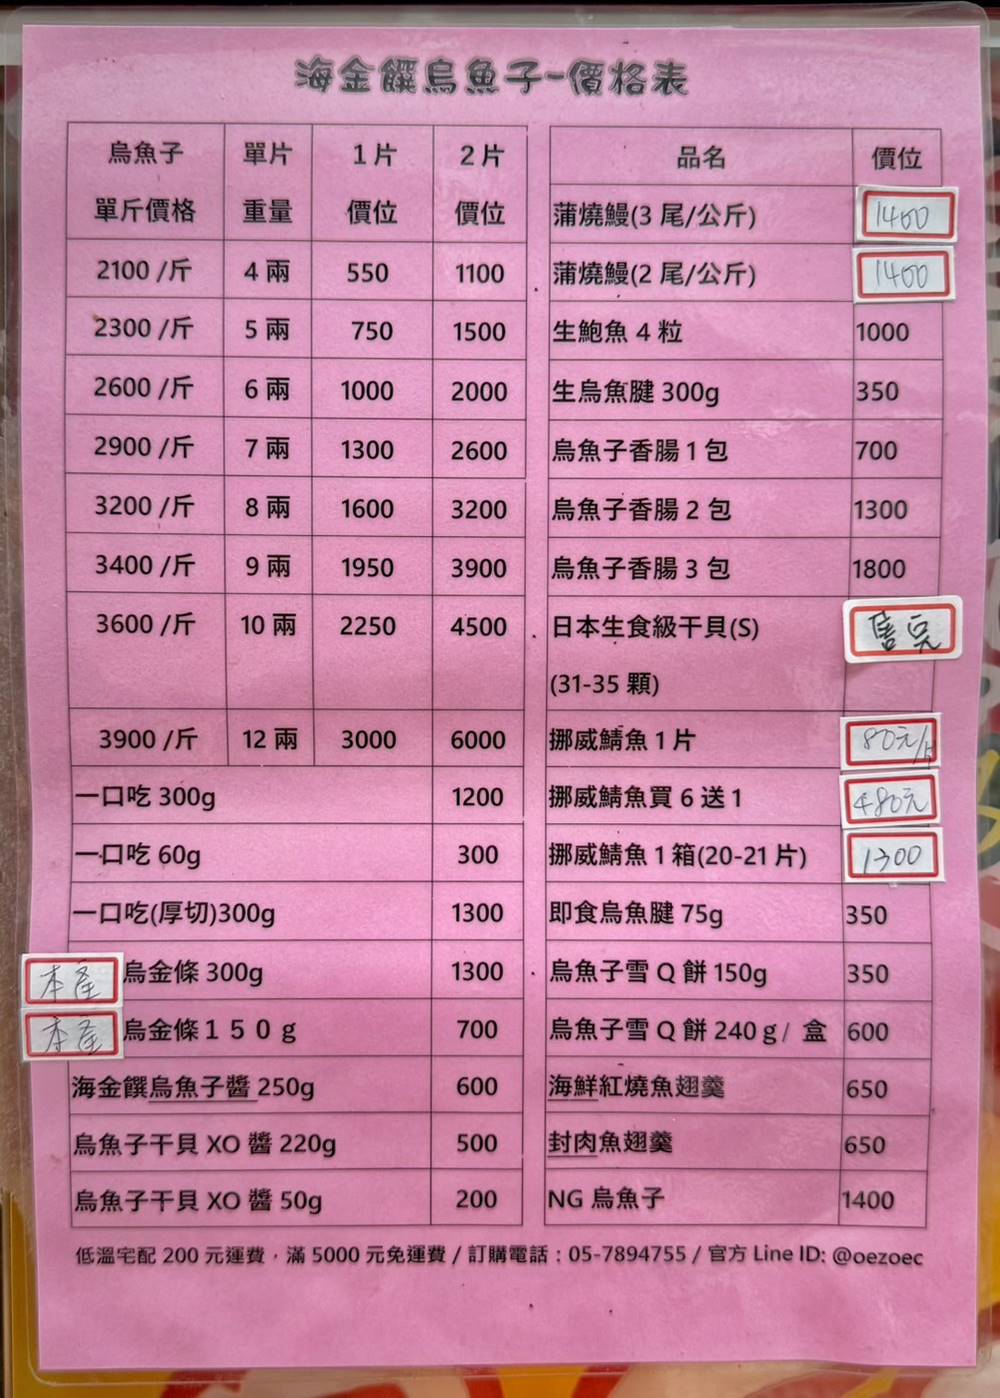 海金饌烏魚子-價格表
烏魚子 單片 1片 2片
單斤價格 重量 價位 價位
2100 /斤 4 兩 550 1100
2300 /斤 5 兩 750 1500
2600 /斤 6 兩 1000 2000
2900 /斤 7 兩 1300 2600
3200 /斤 8 兩 1600 3200
3400 /斤 9 兩 1950 3900
3600 /斤 10 兩 2250 4500
3900 /斤 12 兩 3000 6000
一口吃 300g 1200
一口吃 60g 300
一口吃(厚切)300g 1300
本產 烏金條 300g 1300
本產 烏金條１５０ｇ 700
海金饌烏魚子醬 250g 600
烏魚子干貝 XO 醬 220g 500
烏魚子干貝 XO 醬 50g 200
品名 價位
蒲燒鰻(3 尾/公斤) 1400
蒲燒鰻(2 尾/公斤) 1400
生鮑魚 4 粒 1000
生烏魚腱 300g 350
烏魚子香腸 1 包 700
烏魚子香腸 2 包 1300
烏魚子香腸 3 包 1800
日本生食級干貝(S) 售完
(31-35 顆)
挪威鯖魚 1 片 80元/片
挪威鯖魚買 6 送 1 480元
挪威鯖魚 1 箱(20-21 片) 1300
即食烏魚腱 75g 350
烏魚子雪 Q 餅 150g 350
烏魚子雪 Q 餅 240ｇ/ 盒 600
海鮮紅燒魚翅羹 650
封肉魚翅羹 650
NG 烏魚子 1400
低溫宅配 200 元運費，滿 5000 元免運費 / 訂購電話：05-7894755 / 官方 Line ID: @oezoec